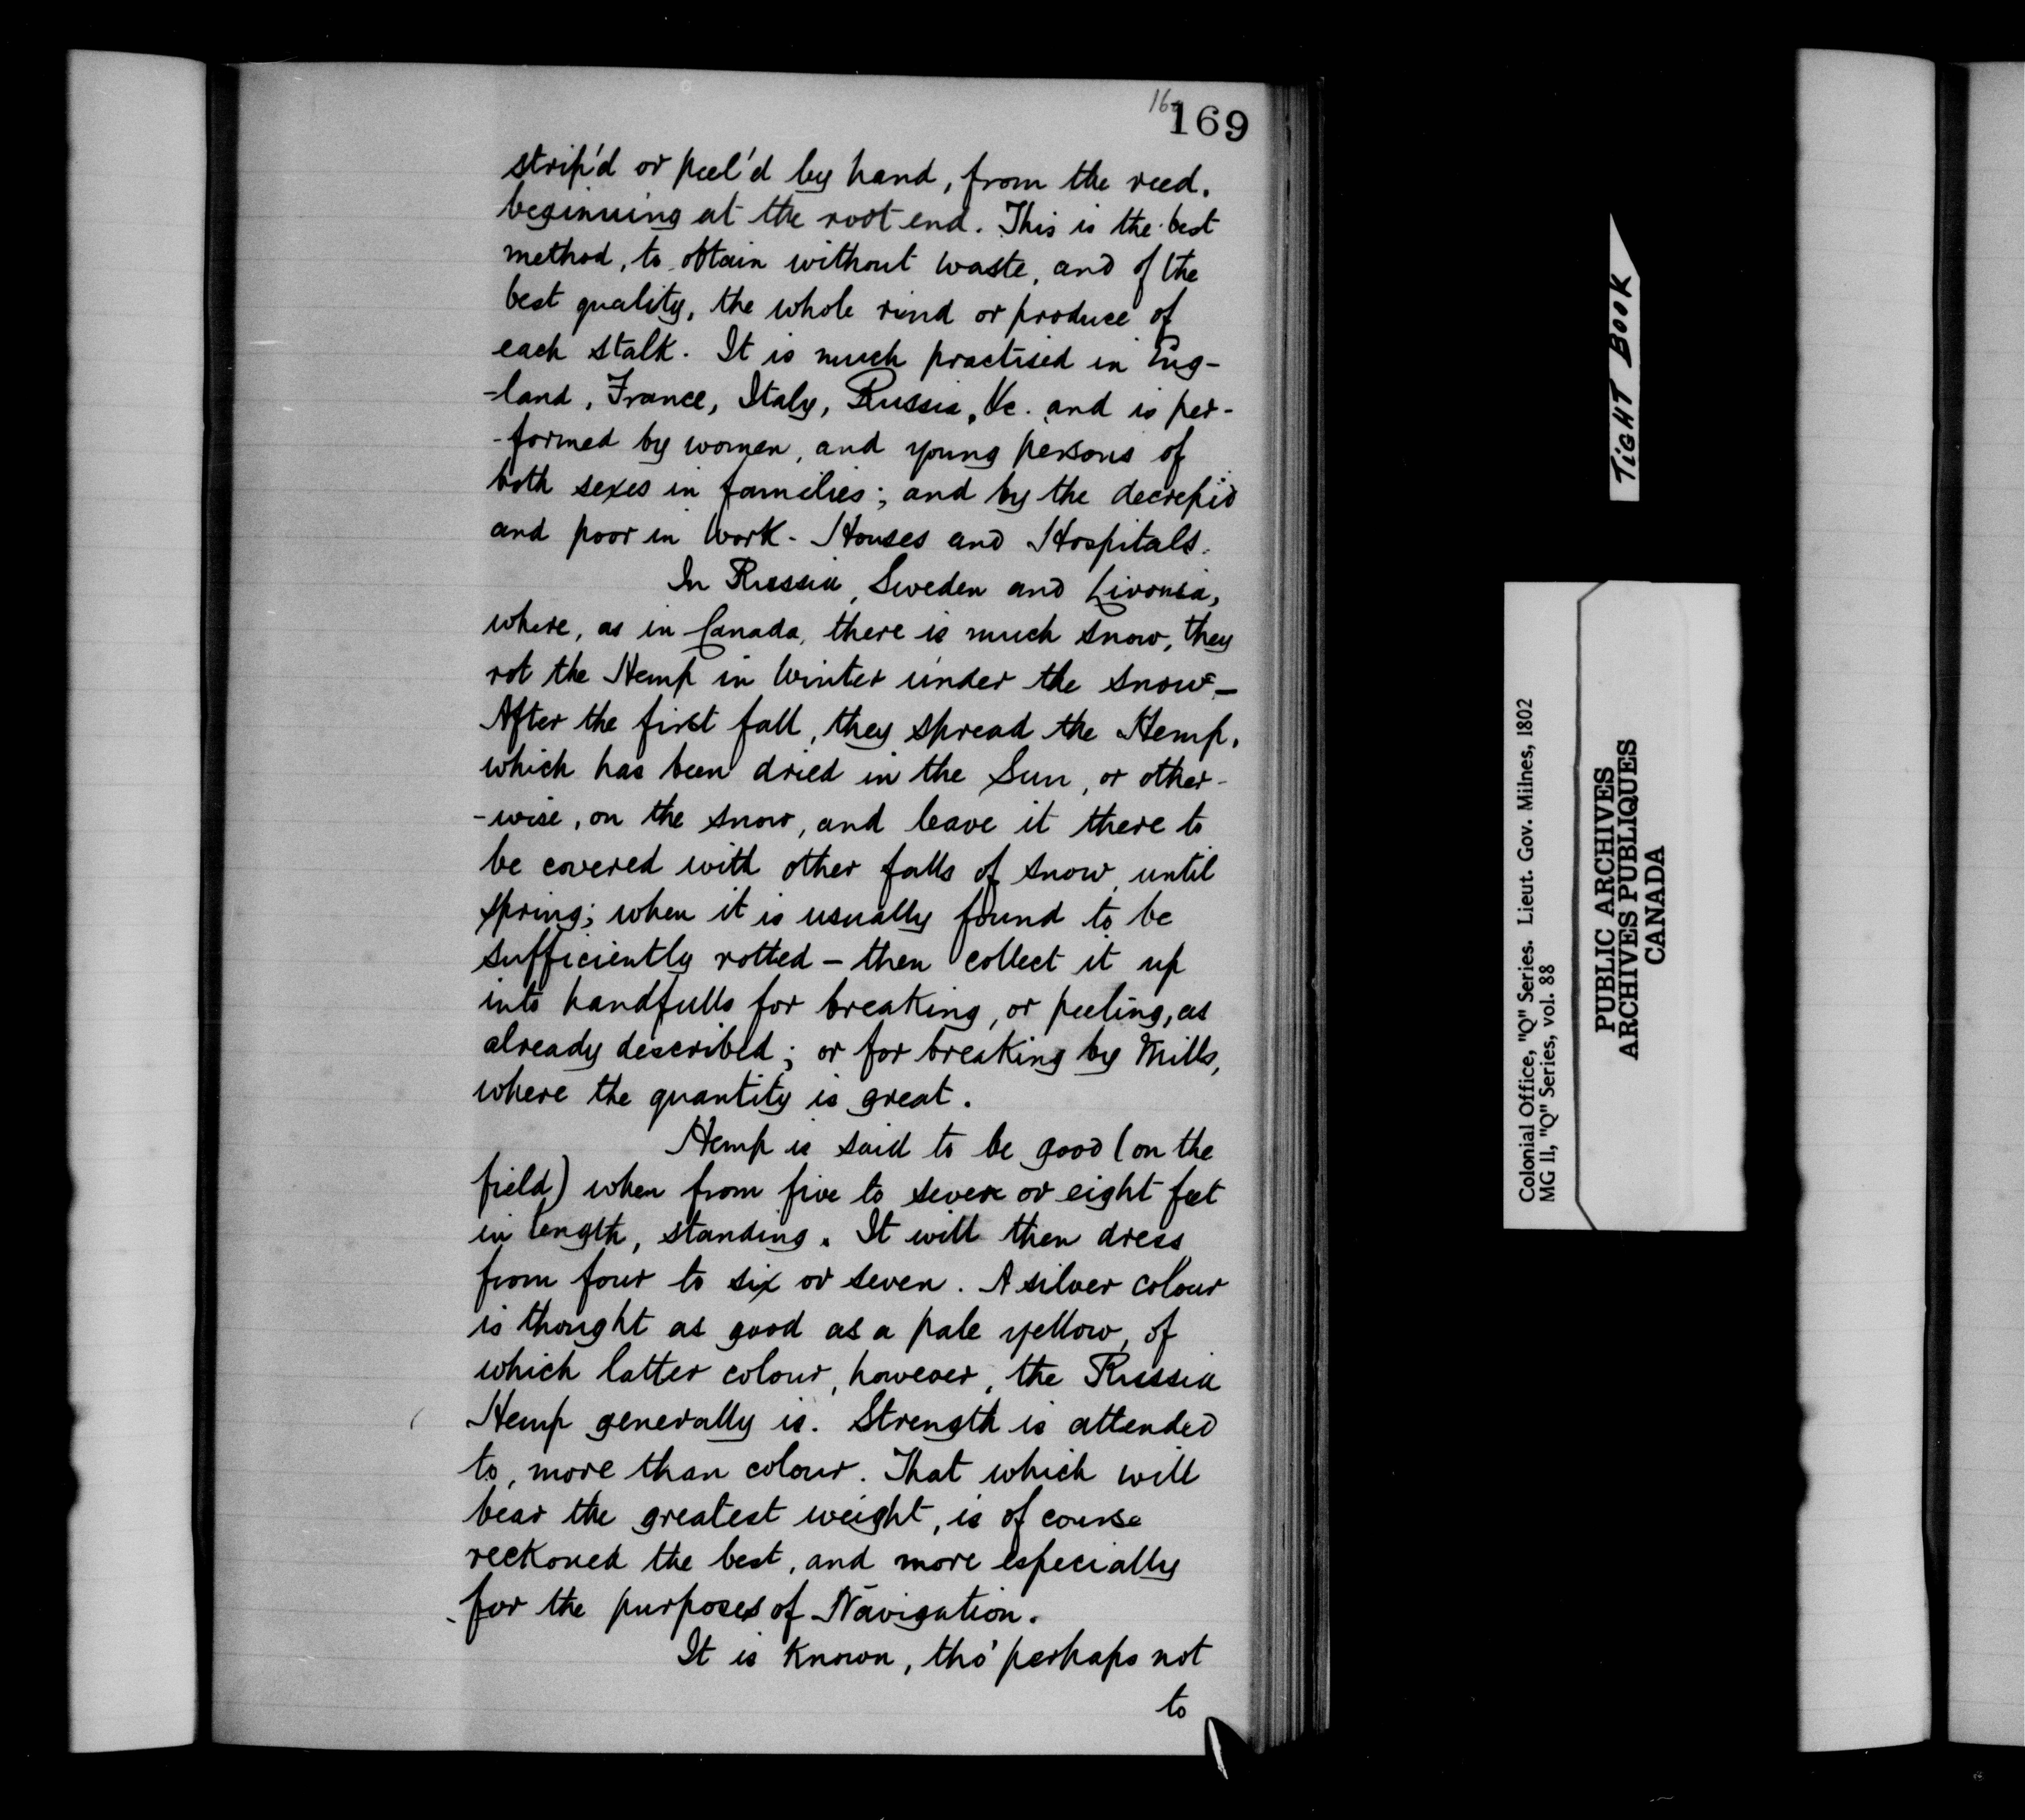 169
strip'd or peel'd by hand, from the reed,
beginning at the root end. This is the best
method, to obtain without waste, and of the
best quality, the whole rind or produce of
each stalk. It is much practised in Eng-
-land, France, Italy, Russia, &c. and is per-
-formed by women, and young persons of
both sexes in families; and by the decrepid
and poor in Work-Houses and Hospitals.
In Russia, Sweden and Livonia,
where, as in Canada, there is much snow, they
rot the Hemp in Winter under the snow—
After the first fall, they spread the Hemp,
which has been dried in the Sun, or other-
-wise, on the snow, and leave it there to
be covered with other falls of snow, until
spring; when it is usually found to be
sufficiently rotted – then collect it up
into handfulls for breaking, or peeling, as
already described; or for breaking by Mills,
where the quantity is great.
Hemp is said to be good (on the
field) when from five to seven or eight feet
in length, standing. It will then dress
from four to six or seven. A silver colour
is thought as good as a pale yellow, of
which latter colour, however, the Russia
Hemp generally is. Strength is attended
to, more than colour. That which will
bear the greatest weight, is of course
reckoned the best, and more especially
for the purposes of Navigation.
It is known, tho' perhaps not
to
TiGHT BOOK
Colonial Office, "Q" Series. Lieut. Gov. Milnes, 1802
MG 11, "Q" Series, vol. 88
PUBLIC ARCHIVES
ARCHIVES PUBLIQUES
CANADA